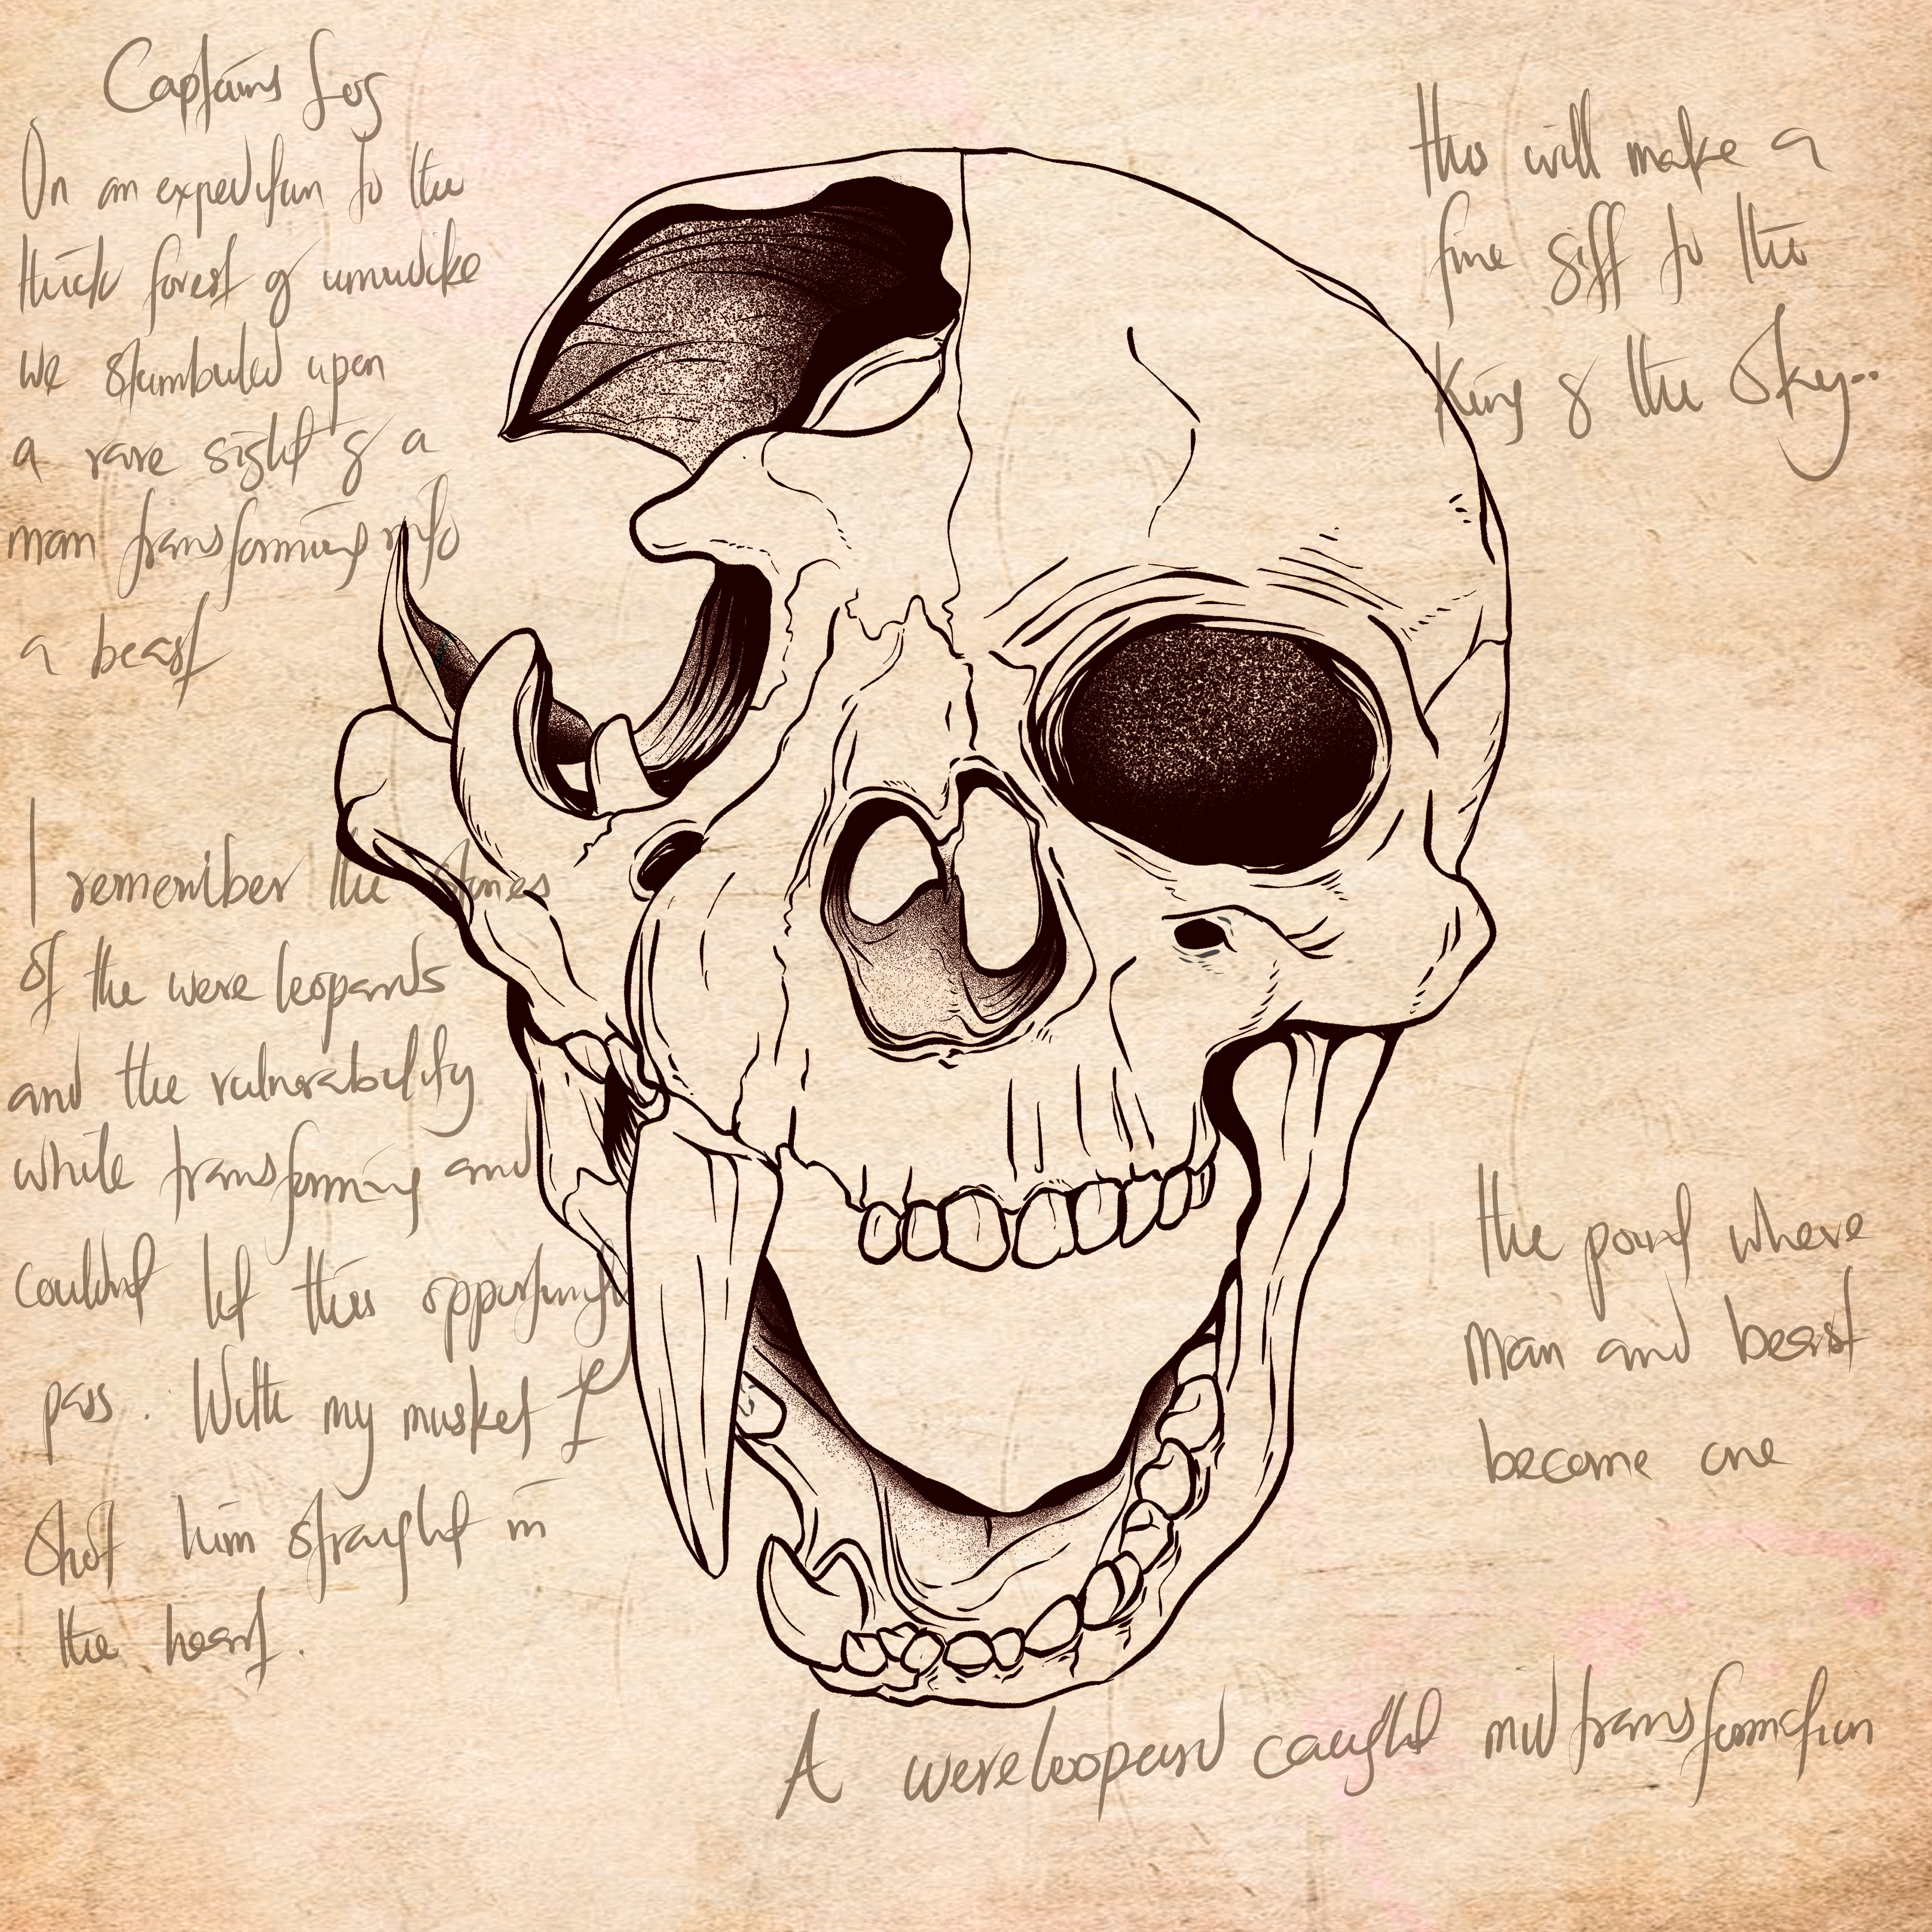 Captains Log
On an expedition to the
thick forest of umudike
we stumbuled upon
a rare sight of a
man transforming into
a beast
I remember the
of the were leopards
and the vulnerability
while transforming and
couldnt let this opportunity
pass. With my musket I
shot him straight in
the heart.
this will make a
fine gift to the
King of the Sky..
the point where
man and beast
become one
A wereleopard caught mid transformation